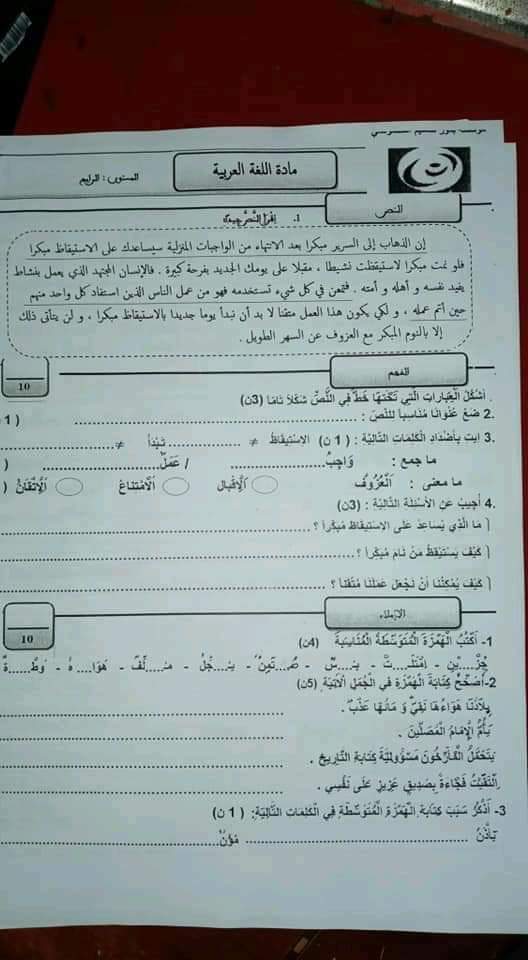 مادة اللغة العربية
المستوى : الرابع
النص
1. اقرأ النص جيدا
إن الذهاب إلى السرير مبكرا بعد الانتهاء من الواجبات المنزلية سيساعدك على الاستيقاظ مبكرا
فلو نمت مبكرا لاستيقظت نشيطا ، مقبلا على يومك الجديد بفرحة كبيرة . فالإنسان المجتهد الذي يعمل بنشاط
يفيد نفسه و أهله و أمته . فتمعن في كل شيء تستخدمه فهو من عمل الناس الذين استفاد كل واحد منهم
حين أتم عمله ، و لكي يكون هذا العمل متقنا لا بد أن نبدأ يوما جديدا بالاستيقاظ مبكرا ، و لن يتأتى ذلك
إلا بالنوم المبكر مع العزوف عن السهر الطويل .
الفهم
10
. أشكل العبارات التي تحتها خط في النص شكلا تاما (3ن)
2. ضع عنوانا مناسبا للنص : ............ ( 1
3. ايت بأضداد الكلمات التالية : ( 1 ن) الاستيقاظ ≠ ............ نبدأ ≠ ............
ما جمع : واجب ............ / عمل ............ (
ما معنى : العزوف الإقبال الامتناع الإتقان (
4 أجيب عن الأسئلة التالية : (3ن)
ما الذي يساعد على الاستيقاظ مبكرا ؟ ............
كيف يستيقظ من نام مبكرا ؟ ............
كيف يمكننا أن نجعل عملنا متقنا ؟ ............
الإملاء
10
1- أكتب الهمزة المتوسطة المناسبة (4ن)
2- أصحح كتابة الهمزة في الجمل الآتية (5ن)
بلادنا هواءها نقي و ماءها عذب . ............
يأم الإمام المصلين . ............
يتحمل المؤرخون مسؤولية كتابة التاريخ . ............
التقيت فجاءة بصديق عزيز على نفسي . ............
3- أذكر سبب كتابة الهمزة المتوسطة في الكلمات التالية: ( 1 ن)
يأذن ............ مؤن ............